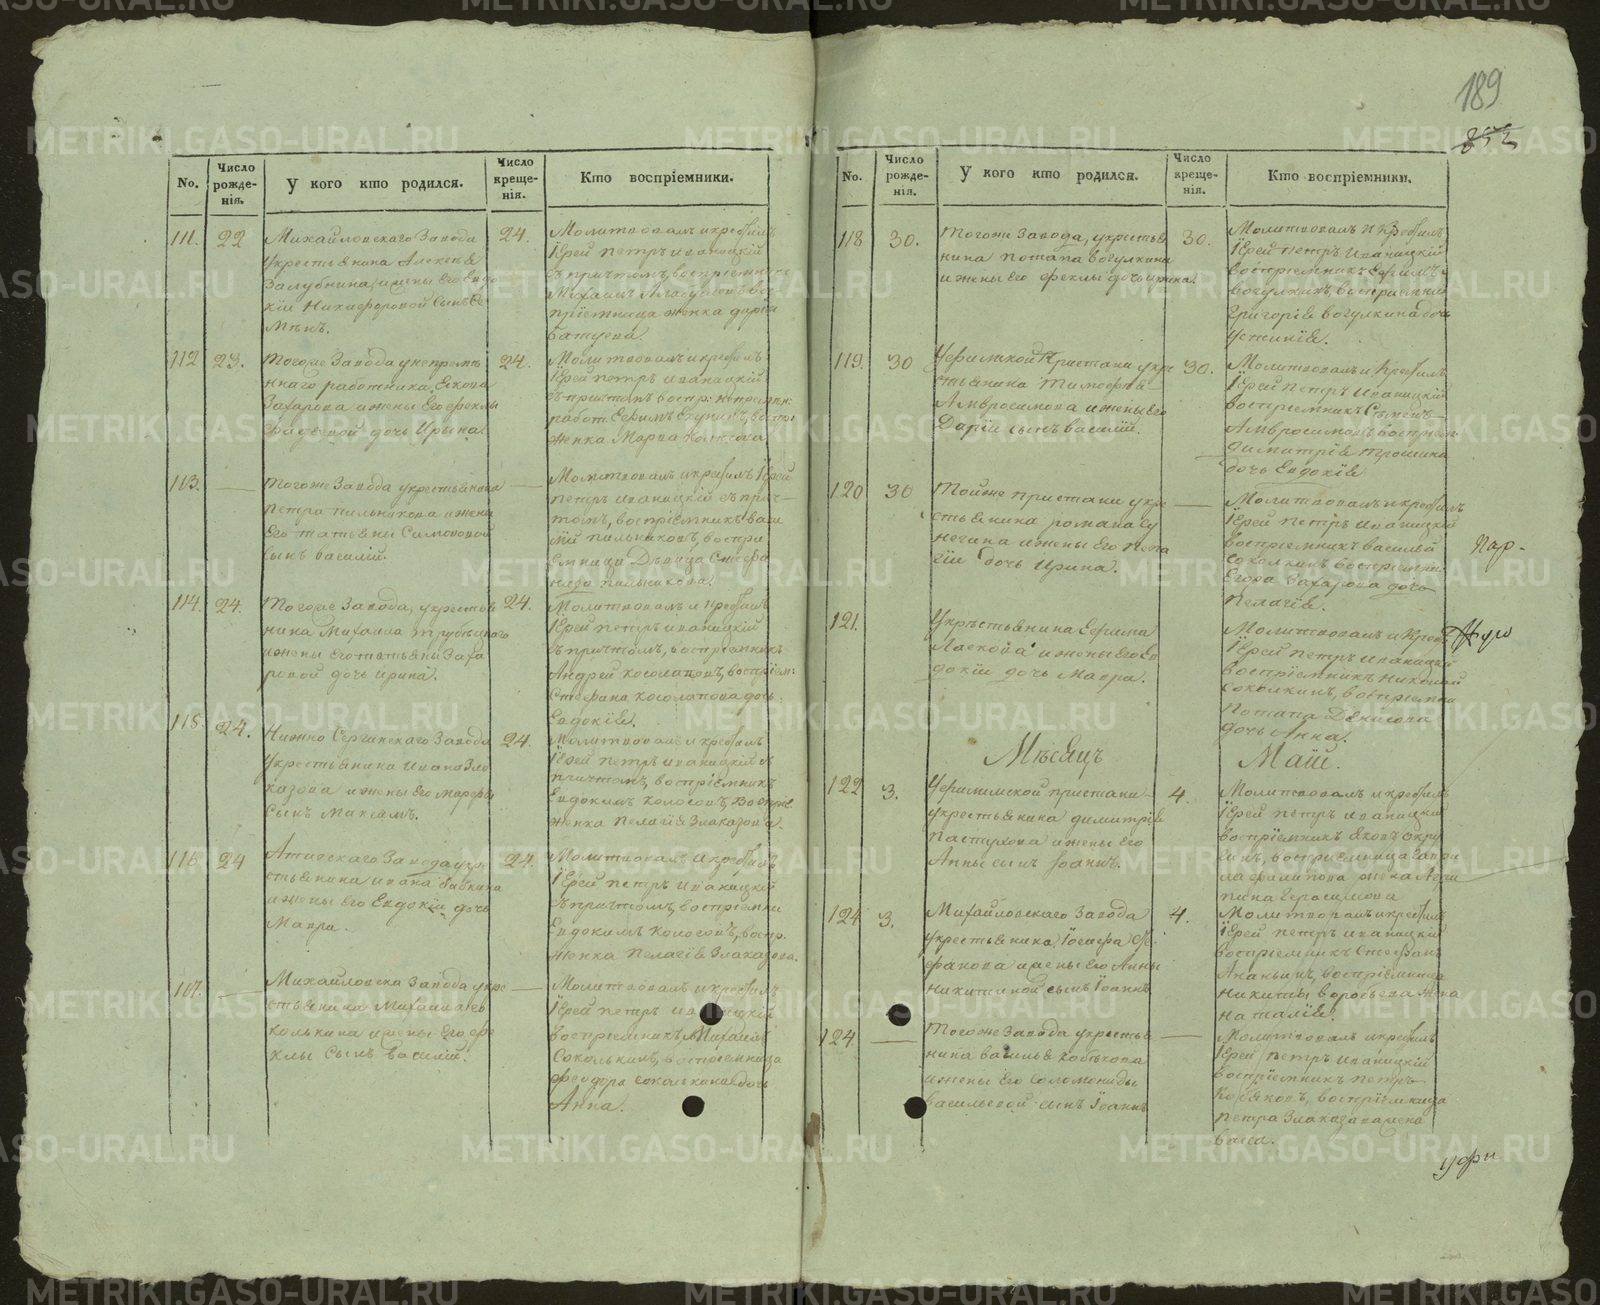 189
852
No.
Число рожде-нія.
У кого кто родился.
Число креще-нія.
Кто воспріемники.
111.
22
Михайловскаго Завода
укрестьянина Алексея
Залубнина, и жены его Евдо
кіи Никифоровой сынъ Се
мѣнъ.
24.
Молитвовалъ и крестилъ
Іерей Петръ Иваницкій
съ причтомъ, воспріемникъ
Михаилъ
пріемница женка Дарья
Батуева.
112
23.
Тогоже Завода унепремѣ
ннаго работника Якова
Захарова и жены Его Феклы
Фадеевой дочь Ирина.
24.
Молитвовалъ и крестилъ
Іерей Петръ Иваницкій
съ причтомъ воспр: непремен:
работ. Ефимъ
женка Марва
113.
Тогоже Завода укрестьянина
Петра Пильникова и жены
Его Татьяны Симоновой
сынъ Василій.
Молитвовалъ и крестилъ Іерей
Петръ Иваницкій съ прич-
томъ, воспріемникъ Васи
лій Пильниковъ, воспри
емница Дѣвица Стефа
нида Пильникова.
114.
24.
Тогоже Завода, укрестья
нина Михаила Трубецкаго
и жены Его Татьяны Заха
ровой дочь Ирина.
24.
Молитвовалъ и крестилъ
Іерей Петръ Иваницкій
съ причтомъ, воспріемникъ
Андрей Косолаповъ, воспріем:
Стефана Косолапова дочь
Евдокія.
115
24.
Нижно Сергинскаго Завода
укрестьянина Ивана Зло
казова и жены Его Марфы
сынъ Максимъ.
24.
Молитвовалъ и крестилъ
Іерей Петръ Иваницкій съ
причтомъ, воспріемникъ
Евдокимъ Кологовъ, воспріе
женка Пелагія Злаказова.
116.
24
Атигскаго Завода укре
стьянина Ивана Бабкина
и жены Его Евдокіи дочь
Мавра.
24.
Молитвовалъ и крестилъ
Іерей Петръ Иваницкій
съ причтомъ, воспріемни
Евдокимъ Кологовъ, воспр.
женка Пелагія Злаказова.
117.
Михайловска Завода укре
стьянина Михаила Со
колькина и жены Его Фе
клы сынъ Василій.
Молитвовалъ и крестилъ
Іерей Петръ Иваницкій
воспріемникъ Михаилъ
Соколькинъ, воспріемница
Феодора Соколькина дочь
Анна.
No.
Число рожде-нія.
У кого кто родился.
Число креще-нія.
Кто воспріемники.
118
30.
Тогоже Завода, укрестья
нина Потапа Вогулкина
и жены Его Феклы дочь
30.
Молитвовалъ и Крестилъ
Іерей Петръ Иваницкій
воспріемникъ Ефимъ
Вогулкинъ, воспріемни
Григорія Вогулкина дочь
Устинія.
119.
30
Уфимской Пристани укре
стьянина Тимофея
Амвросимова и жены Его
Даріи сынъ Василій.
30.
Молитвовалъ и Крестилъ
Іерей Петръ Иваницкій
воспріемникъ Сѵмеонъ
Амвросимовъ, воспріем
Димитрія Трошина
дочь Евдокія
120
30
Тойже Пристани укре
стьянина Романа Су
негина и жены Его Пела
гіи дочь Ирина.
Молитвовалъ и крестилъ
Іерей Петръ Иваницкій
воспріемникъ Василій
Соколкинъ воспріемни
Егора Захарова дочь
Пелагія.
Пар-
121.
Укрестьянина Ефима
Ласкова и жены Его Ев
докіи дочь Мавра.
Молитвовалъ и Крести
Іерей Петръ Иваницкій
воспріемникъ Николай
Соколкинъ, воспріемни
Потапа Денисова
дочь Анна.
Мѣсяцъ
Маій.
122
3.
Уфимской пристани
укрестьянина Димитрія
Пастухова и жены Его
Анны сынъ Іоаннъ.
4.
Молитвовалъ и крестилъ
Іерей Петръ Иваницкій
воспріемникъ Яковъ
воспріемница Гаври
ла Филипова жена Агри
пина Герасимова
124
3.
Михайловскаго Завода
укрестьянина Іосифа Сте
фанова и жены Его Анны
Никитиной сынъ Іоаннъ
4.
Молитвовалъ и крестилъ
Іерей Петръ Иваницкій
воспріемникъ Стефанъ
Ананьинъ, воспріемница
Никиты Воробьева жена
Наталія.
124.
Тогоже Завода укрестья
нина Василья Кобякова
и жены Его Соломониды
Васильевой сынъ Іоаннъ
Молитвовалъ и крестилъ
Іерей Петръ Иваницкій
воспріемникъ Петръ
Кобяковъ, воспріемница
Петра Злаказова жена
Васса.